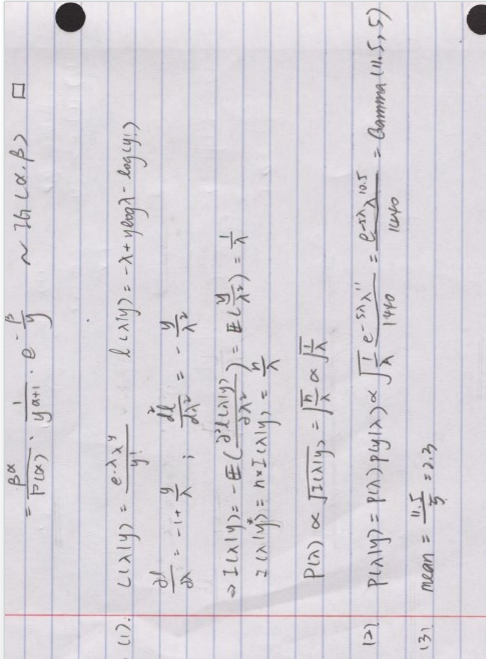 = β^α / Γ(α) · 1 / y^{α+1} · e^{-β/y} ~ IG(α, β) □
(1). L(λ|y) = e^{-λ} λ^y / y! l(λ|y) = -λ + y log λ - log(y!)
∂l/∂λ = -1 + y/λ ; d²l/dλ² = - y/λ²
⇒ I(λ|y) = -E(∂²l(λ|y) / ∂λ²) = E(y/λ²) = 1/λ
I(λ|y⃗) = n * I(λ|y) = n/λ
P(λ) ∝ √I(λ|y) = √(n/λ) ∝ √(1/λ)
(2) P(λ|y) = P(λ) P(y|λ) ∝ √(1/λ) e^{-5λ} λ^{11} / 1440 = e^{-5λ} λ^{10.5} / 1440 = Gamma(11.5, 5)
(3) mean = 11.5/5 = 2.3